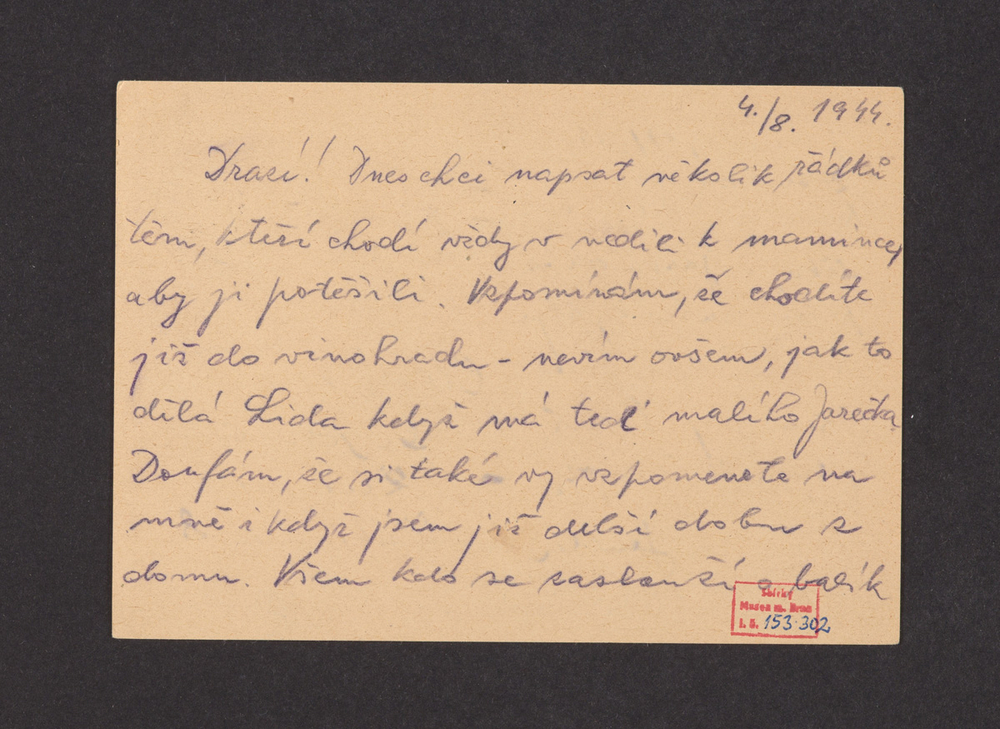 4./8. 1944.
Drazí! Dnes chci napsat několik řádků
těm, kteří chodí vždy v neděli k mamince,
aby ji potěšili. Vzpomínám, že chodíte
již do vinohradu - nevím ovšem, jak to
dělá Lida když má teď malího Jarečka
Doufám, že si také vy vzpomenete na
mně i když jsem již delší dobu z
domu. Všem kdo se zaslouží o balík
Sbírky
Musea m. Brna
I. č. 153.302